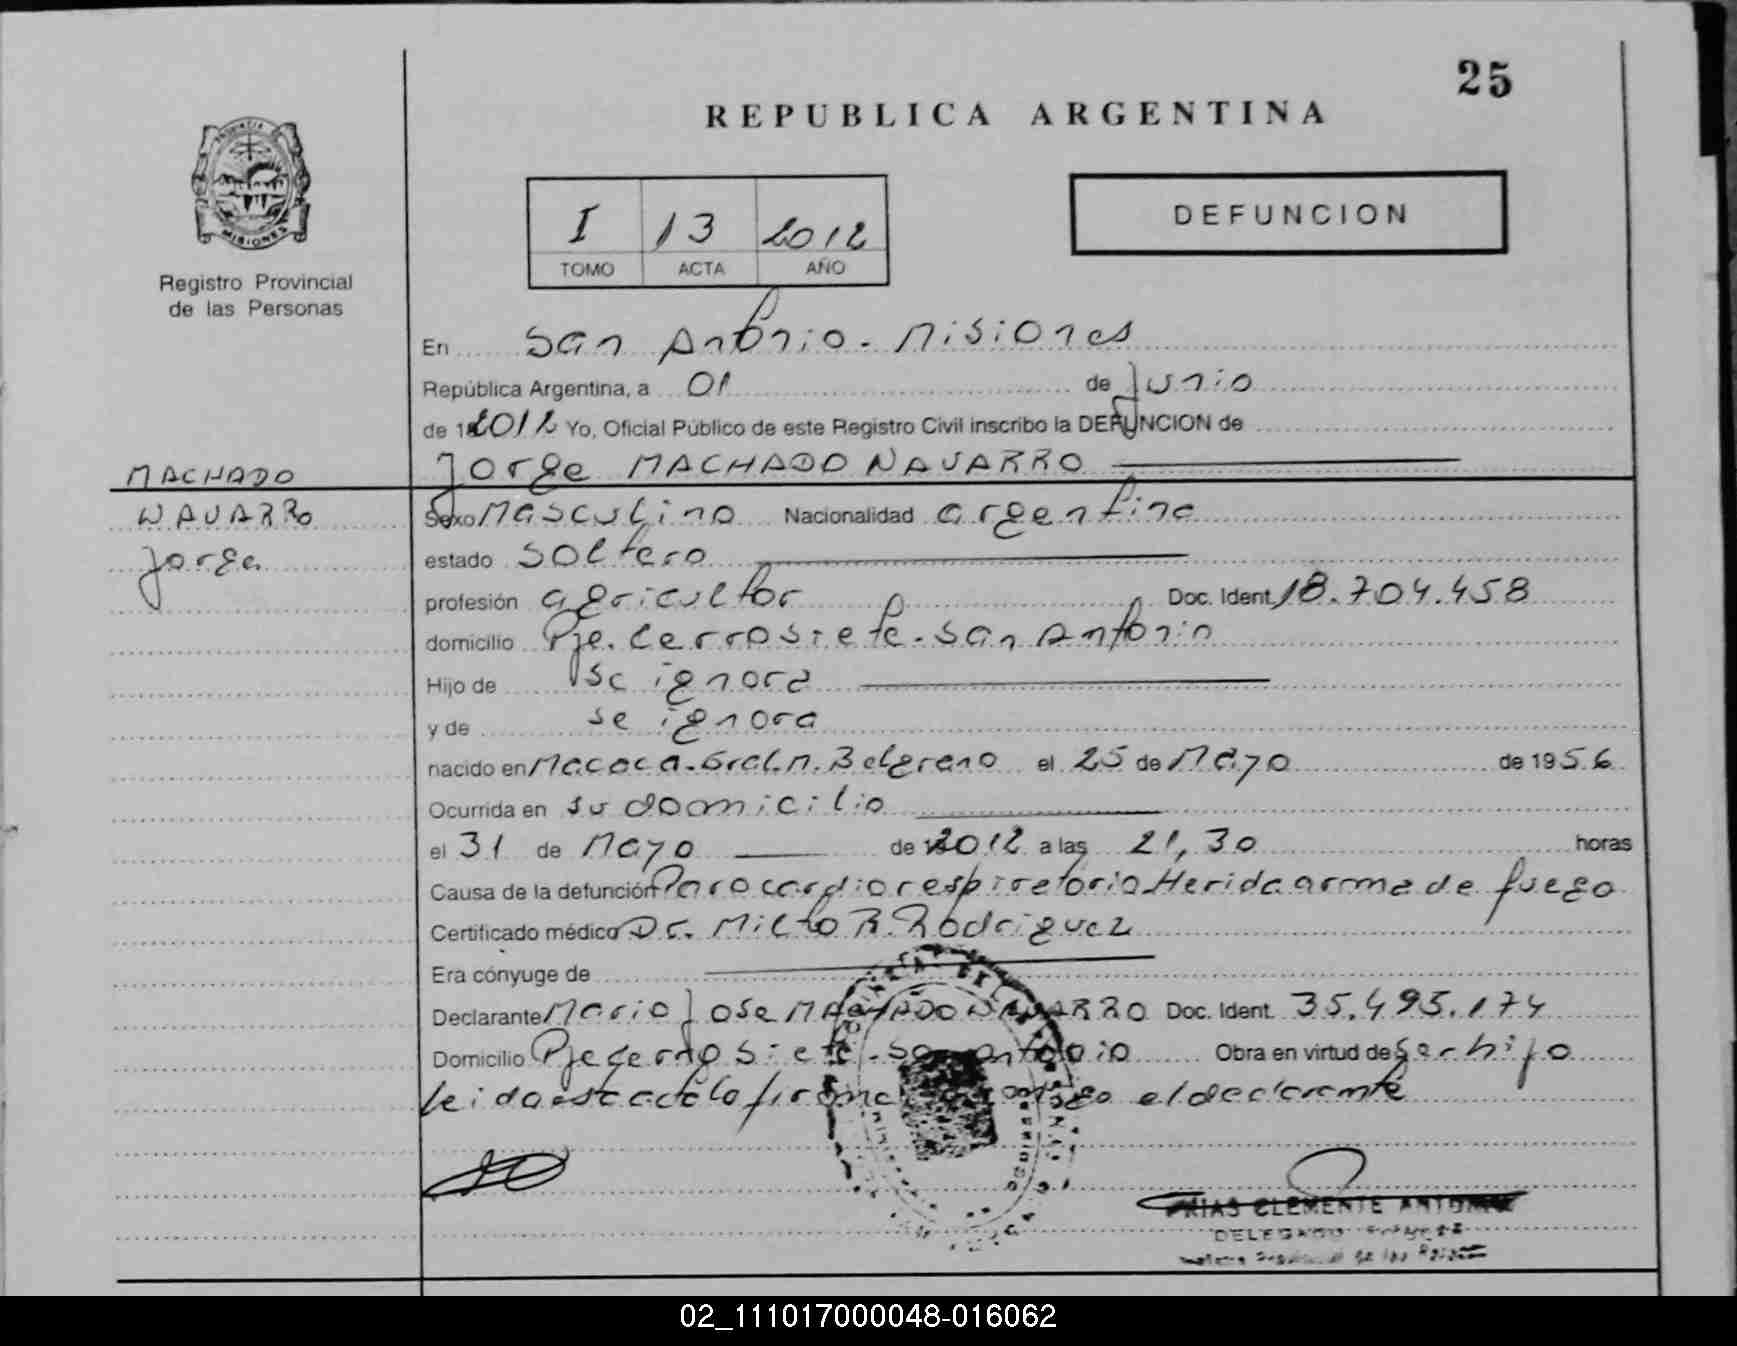 25
REPUBLICA ARGENTINA
PROVINCIA DE
MISIONES
Registro Provincial
de las Personas
I 13 2012
TOMO ACTA AÑO
DEFUNCION
En San Antonio - Misiones
República Argentina, a 01 de Junio
de 2012 Yo, Oficial Público de este Registro Civil inscribo la DEFUNCION de
Jorge MACHADO NAVARRO
MACHADO
NAVARRO
Jorge
Sexo Masculino Nacionalidad argentina
estado Soltero
profesión agricultor Doc. Ident 18.704.458
domicilio Pje. Cerro Siete - San Antonio
Hijo de Se ignora
y de se ignora
nacido en Macaca - Gral. M. Belgrano el 25 de Mayo de 1956
Ocurrida en su domicilio
el 31 de Mayo de 2012 a las 21,30 horas
Causa de la defunción Paro cardiorespiratorio Herida arma de fuego
Certificado médico Dr. Milto R. Rodriguez
Era cónyuge de
Declarante Mario Jose MACHADO NAVARRO Doc. Ident. 35.495.174
Domicilio Pje Cerro Siete - San Antonio Obra en virtud de Ser hijo
leida esta acta la firma conmigo el declarante
CLEMENTE ANTONIO
DELEGADO
02_111017000048-016062